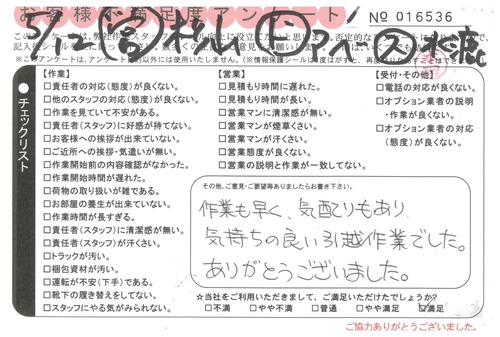 お客様満足度アンケート
No 016536
5/2
※このアンケートは、アンケート以外には使用いたしません。
チェックリスト
【作業】
□責任者の対応(態度)が良くない。
□他のスタッフの対応(態度)が良くない。
□作業を見ていて不安がある。
□責任者(スタッフ)に好感が持てない。
□お客様への挨拶が出来ていない。
□ご近所への挨拶・気遣いが無い。
□作業開始前の内容確認がなかった。
□作業開始時間が遅れた。
□荷物の取り扱いが雑である。
□お部屋の養生が出来ていない。
□作業時間が長すぎる。
□責任者(スタッフ)に清潔感が無い。
□責任者(スタッフ)が汗くさい。
□トラックが汚い。
□梱包資材が汚い。
□運転が不安(下手)である。
□靴下の履き替えをしてない。
□スタッフにやる気がみられない。
【営業】
□見積もり時間に遅れた。
□見積もり時間が長い。
□営業マンに清潔感が無い。
□営業マンが煙草くさい。
□営業マンが汗くさい。
□営業態度が良くない。
□営業の説明と作業が一致してない。
【受付・その他】
□電話の対応が良くない。
□オプション業者の説明
・作業が良くない。
□オプション業者の対応
(態度)が良くない。
その他、ご意見・ご要望等ありましたらお書き下さい。
作業も早く、気配りもあり
気持ちの良い引越作業でした。
ありがとうございました。
☆当社をご利用いただきまして、ご満足いただけたでしょうか?
□不満 □やや不満 □普通 □やや満足 ☑満足
ご協力ありがとうございました。